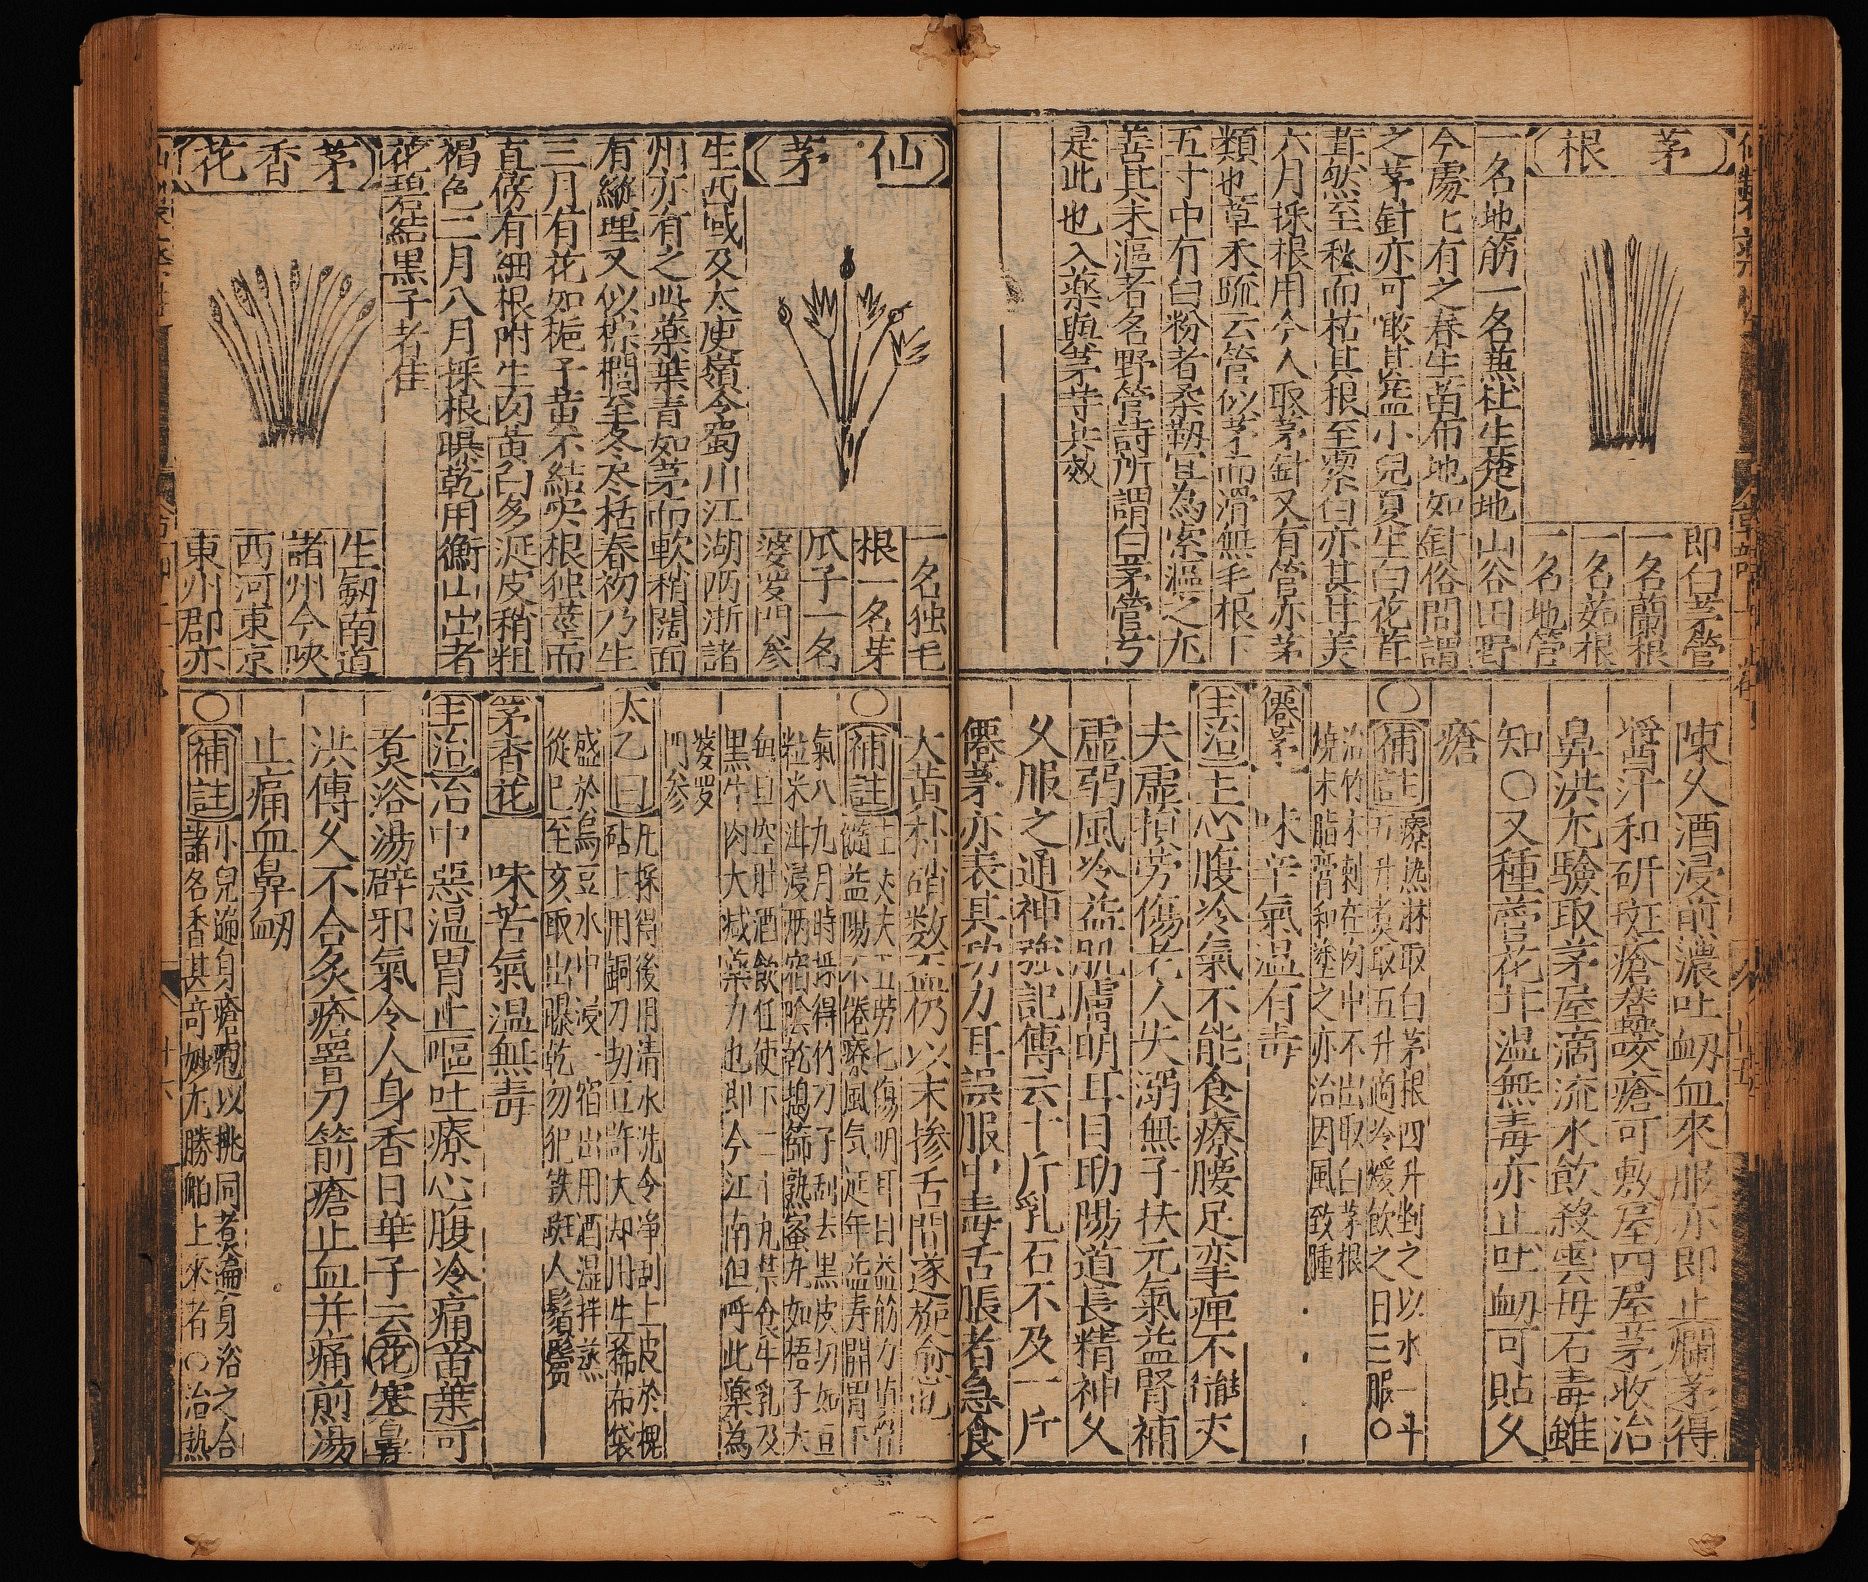 茅根
即白茅菅
一名蘭根
一名茹根
一名地菅
一名地筋一名蕪杜生楚地山谷田野
今處〻有之春生苗布地如針俗間謂
之茅針亦可啖甚益小兒夏生白花茸
茸然至秋而枯其根至潔白亦甚甘美
六月採根用今人取茅針又有菅亦茅
類也草木疏云菅似茅而滑無毛根下
五寸中有白粉者柔靱宜為索漚之尤
善其未漚者名野菅詩所謂白茅菅兮
是此也入藥與茅等共效
陳久酒浸煎濃吐衂血來服亦即止爛茅得
醬汁和研斑瘡蠶咬瘡可敷屋四屋茅收治
鼻洪尤驗取茅屋滴流水飲殺雲母石毒雖
知○又種菅花井溫無毒亦止吐衂可貼久
瘡
○補註 療熱淋取白茅根四升剉之以水一斗
五升煑取五升適冷煖飲之日三服○
治竹木刺在肉中不出取白茅根
燒末脂膏和塗之亦治因風致腫
僊茅 味辛氣溫有毒
主治 主心腹冷氣不能食療腰足挛痺不
夫虛損勞傷老人失溺無子扶元氣益腎補
虛弱風冷益肌膚明耳目助陽道長精神久
久服之通神強記傳云十斤乳石不及一斤
僊茅亦表其功力耳誤服中毒舌脹者急食
仙茅
一名独毛
根一名芽
瓜子一名
婆罗門参
生西域及太庾嶺今蜀川江湖两浙諸
州亦有之此藥葉青如茅而軟稍闊面
有縱理又似棕櫚至冬尽枯春初乃生
三月有花如梔子黃不結实根独莖而
直傍有細根附生肉黃白多涎皮稍粗
褐色二月八月採根曝乾用衡山出者
花碧結黑子者佳
大黃朴硝数盃仍以末摻舌間遂旋愈也
○補註 主丈夫五劳七傷明耳目益筋力填骨
髓益陽不倦療風气延年益寿開胃下
氣八九月時採得竹刀子刮去黑皮切如豆
粒米泔浸两宿陰乾擣篩熟蜜丸如梧子大
每旦空肚酒飲任使下二十丸禁食牛乳及
黑牛肉大减藥力也即今江南但呼此藥為
婆罗
門參
太乙曰 凡採得後用清水洗令净刮上皮於槐
砧上用銅刀切豆許大却用生稀布袋
盛於烏豆水中浸一宿出用酒湿拌蒸
從巳至亥取出曝乾勿犯鉄斑人鬚鬢
茅香花 味苦氣溫無毒
主治 治中惡温胃止嘔吐療心腹冷痛苗葉可
煑浴湯辟邪氣令人身香日華子云花塞鼻
洪傅久不合灸瘡署刀箭瘡止血并痛煎湯
止痛血鼻衂
○補註 小兒遍身瘡皰以桃同煑瀹身浴之合
諸名香甚奇妙尤勝舶上來者○治熱
茅香花
生劒南道
諸州今陜
西河東京
東州郡亦